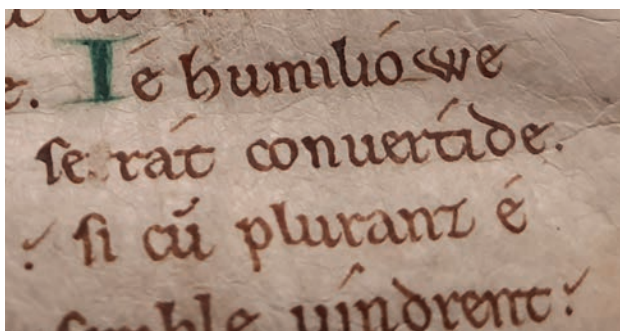 e. Ié humilió we
se rát conuertíde.
si cū plurant é
semble uíndrent